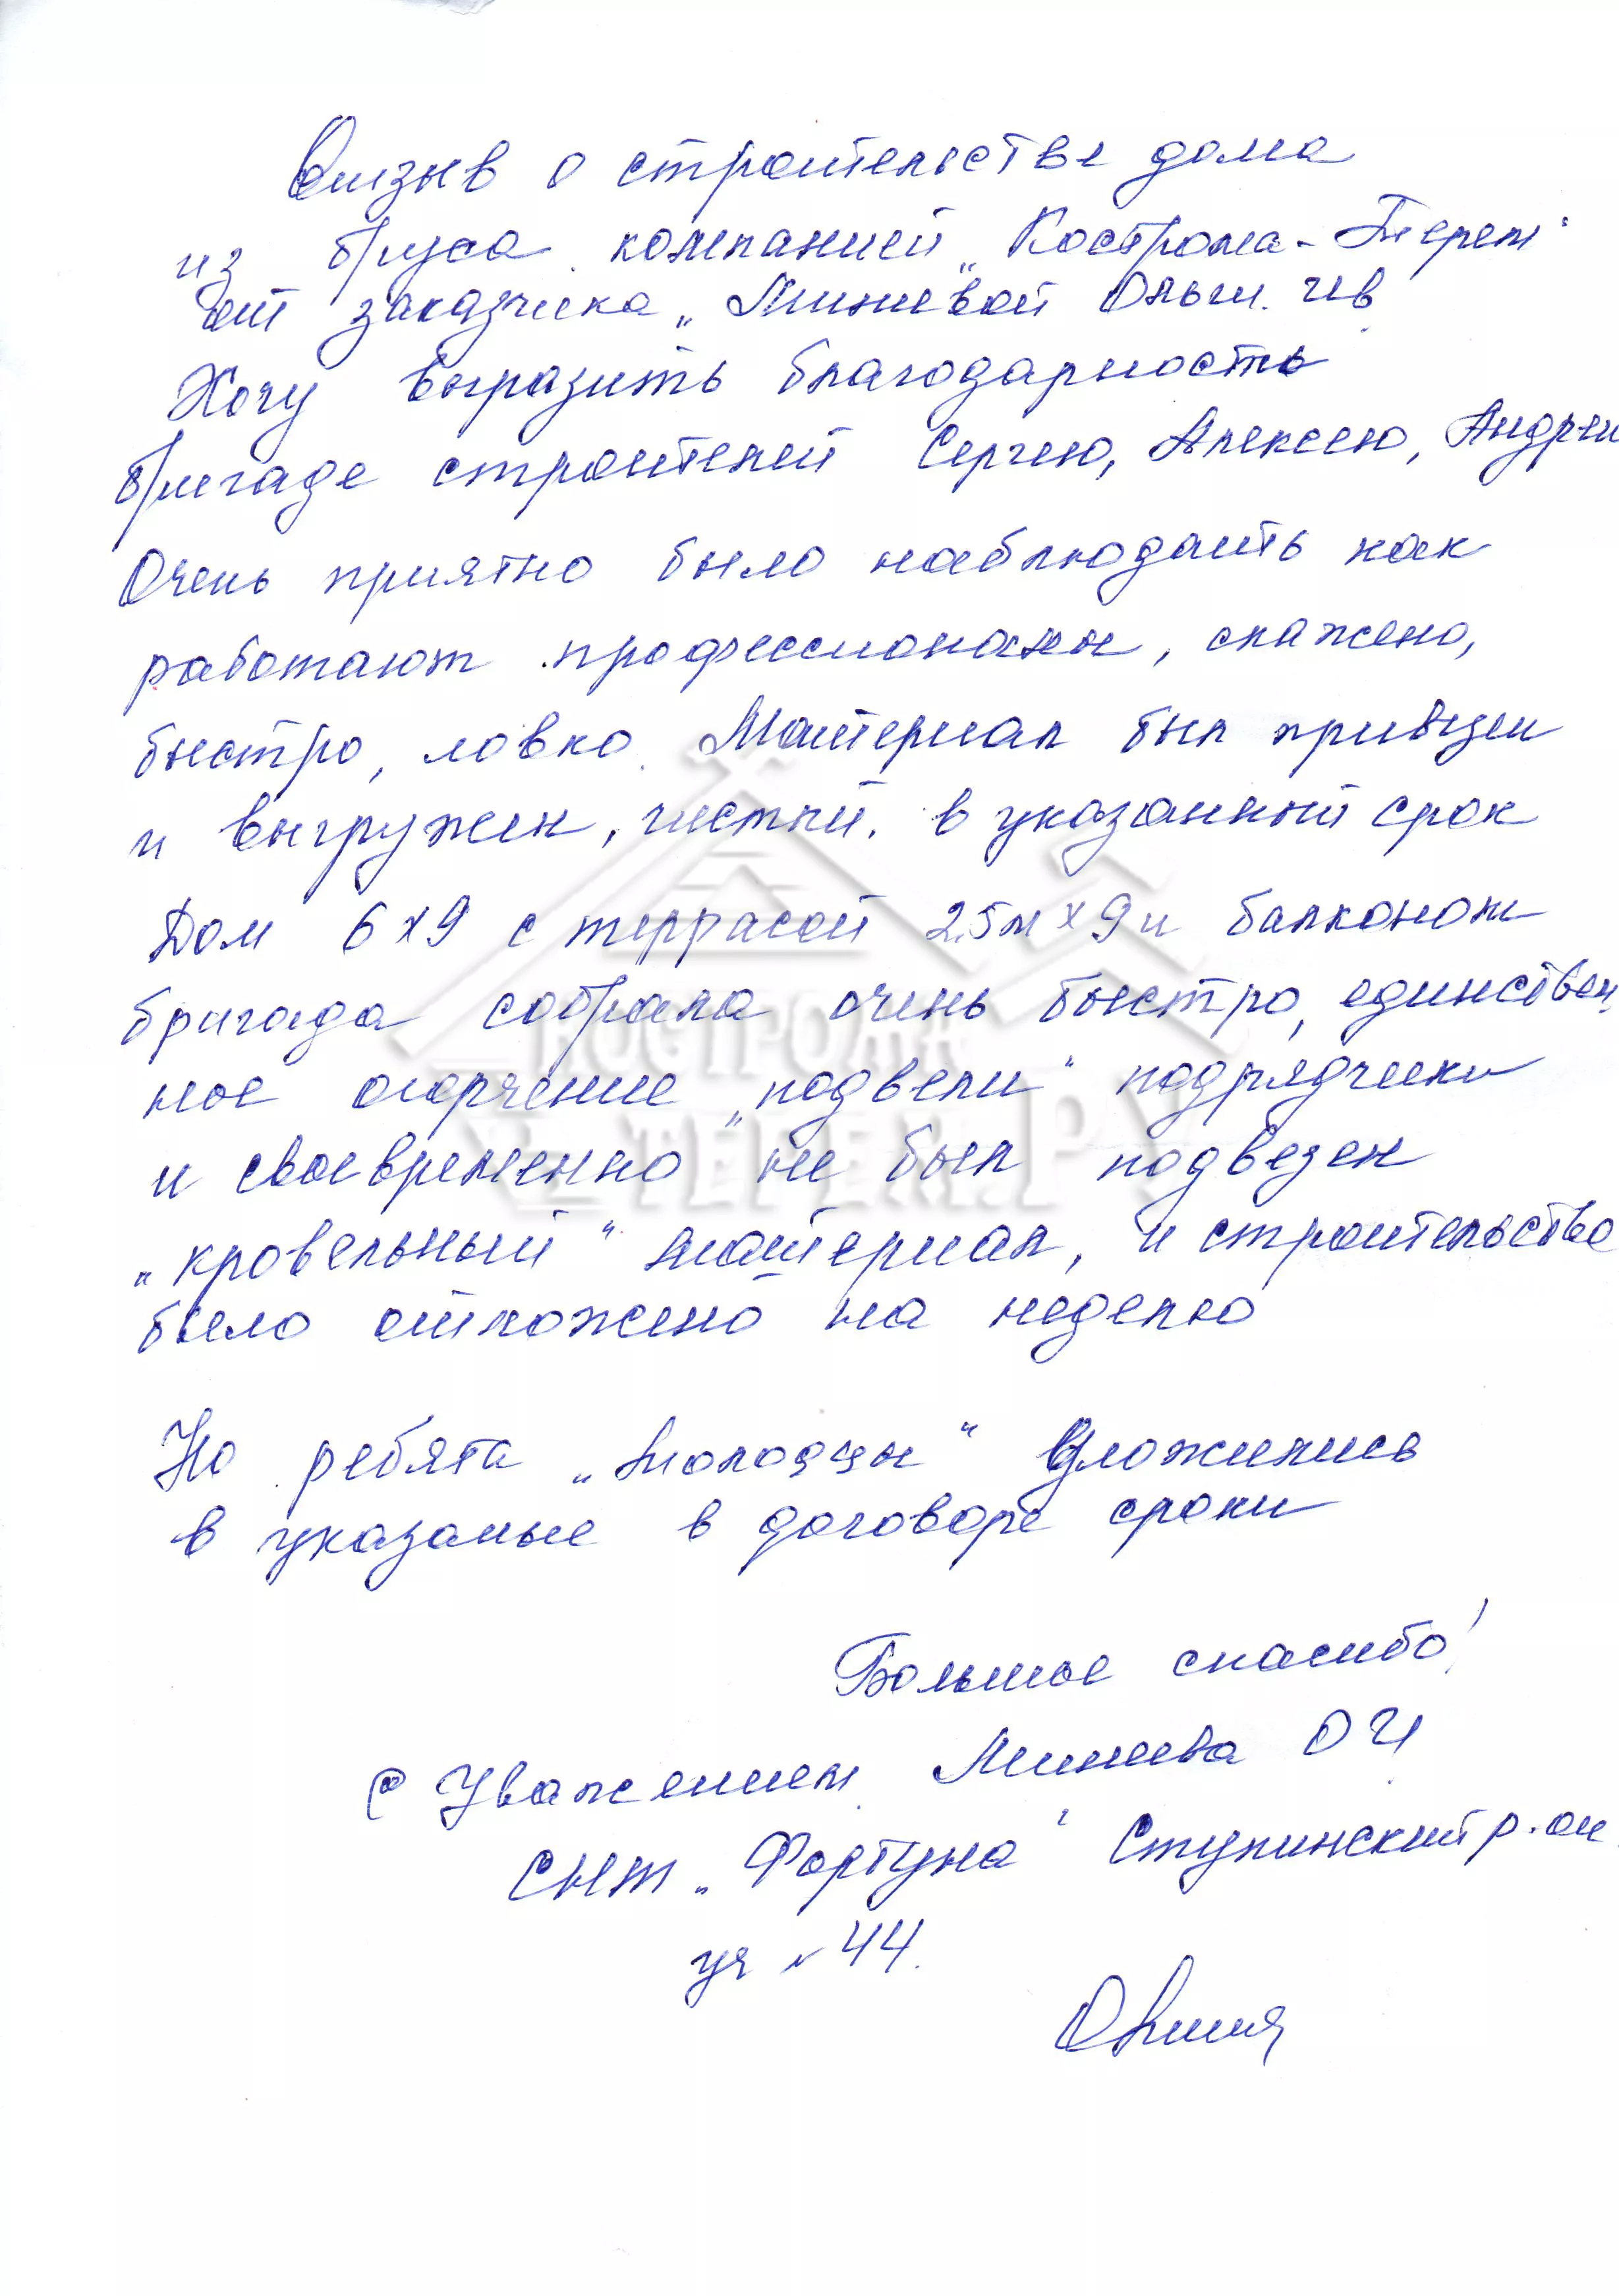 Отзыв о строительстве дома
из бруса компанией „Кострома-Терем"
от заказчика „Минеевой Ольги Ив
Хочу выразить благодарность
бригаде строителей Сергею, Алексею, Андрею
Очень приятно было наблюдать как
работают профессионалы, слажено,
быстро, ловко. Материал был привезен
и выгружен, чистый. в указанный срок
Дом 6х9 с террасой 2,5м х 9 и балконом
бригада собрала очень быстро, единствен
ное огорчение „подвели" подрядчики
и своевременно не был подвезен
„кровельный" материал, и строительство
было отложено на неделю
Но ребята „молодцы" уложились
в указаные в договоре сроки
Большое спасибо!
С Уважением Минеева О И
СНТ „Фортуна" Ступинский р-он
уч № 44.
КОСТРОМА
ТЕРЕМ.РУ